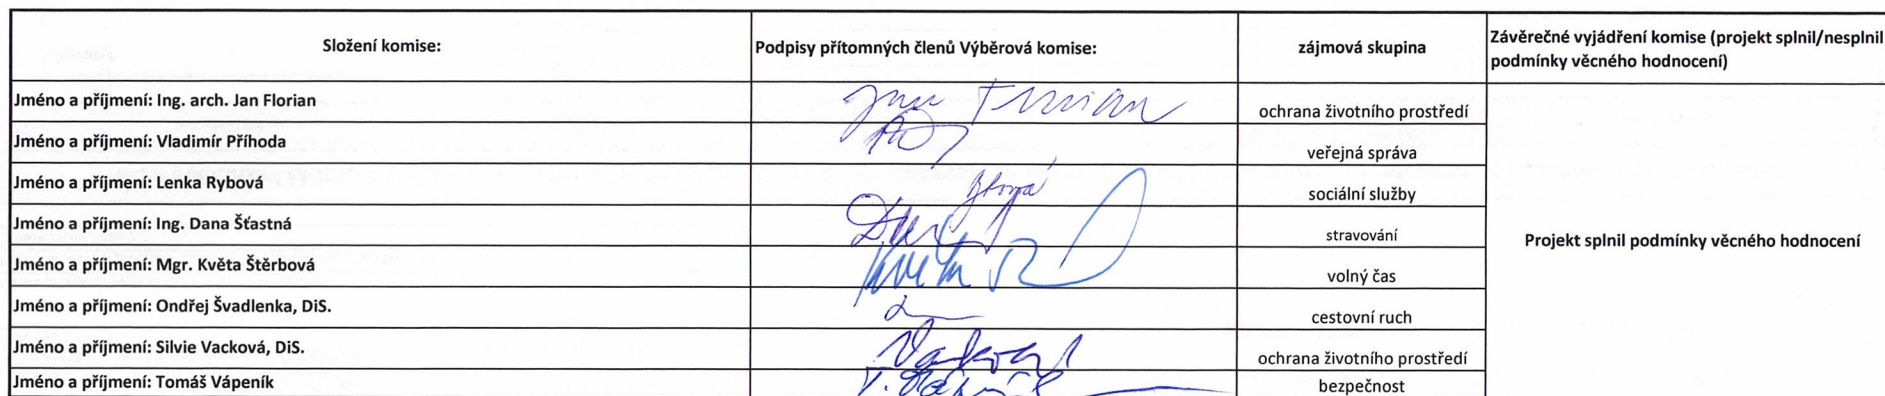 Složení komise:
Podpisy přítomných členů Výběrová komise:
zájmová skupina
Závěrečné vyjádření komise (projekt splnil/nesplnil
podmínky věcného hodnocení)
Jméno a příjmení: Ing. arch. Jan Florian
Jan Florian
ochrana životního prostředí
Jméno a příjmení: Vladimír Příhoda
veřejná správa
Jméno a příjmení: Lenka Rybová
sociální služby
Jméno a příjmení: Ing. Dana Šťastná
stravování
Projekt splnil podmínky věcného hodnocení
Jméno a příjmení: Mgr. Květa Štěrbová
volný čas
Jméno a příjmení: Ondřej Švadlenka, DiS.
cestovní ruch
Jméno a příjmení: Silvie Vacková, DiS.
ochrana životního prostředí
Jméno a příjmení: Tomáš Vápeník
bezpečnost